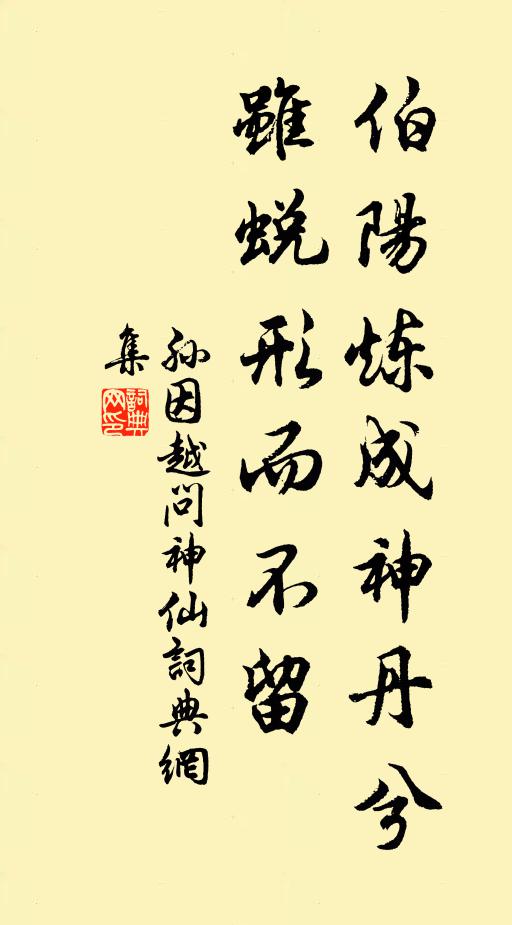 伯陽炼成神丹兮
雖蜕形而不留
孙因越問神仙詞典網
集
詞典
网印